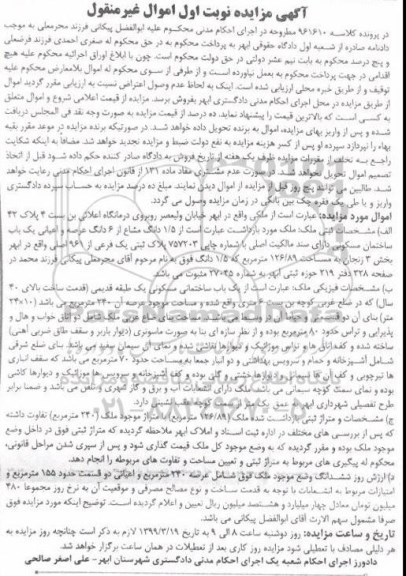 آگهی مزایده نوبت اول اموال غیرمنقول
در پرونده کلاسه ۹۶۱۶۱۰ مطروحه در اجرای احکام مدنی محکوم علیه ابوالفضل پیکانی فرزند محرمعلی به موجب
دادنامه صادره از شعبه اول دادگاه حقوقی ابهر به پرداخت محکوم به در حق محکوم له صغری احمدی فرزند فرضعلی
و پنج درصد محکوم به بابت نیم عشر دولتی در حق دولت محکوم است. چون با ابلاغ اوراق اجرائیه محکوم علیه هیچ
اقدامی در جهت پرداخت محکوم به بعمل نیاورده است و از طرفی از سوی محکوم له اموال بلامعارض محکوم علیه
توقیف و از طریق خبره محلی ارزیابی شده است. اینک به لحاظ عدم وصول اعتراض نسبت به ارزیابی مقرر گردید اموال
از طریق مزایده در محل اجرای احکام مدنی دادگستری ابهر بفروش برسد. مزایده از قیمت اعلامی شروع و اموال متعلق
به کسی است که بالاترین قیمت را پیشنهاد نماید. ده درصد از قیمت مزایده به صورت وجه نقد فی المجلس دریافت
شده و پس از واریز بهای مزایده، اموال به برنده تحویل داده خواهد شد. در صورتیکه برنده مزایده در موعد مقرر بقیه
بهاء را نپردازد سپرده او پس از کسر هزینه مزایده به نفع دولت ضبط و مزایده تجدید خواهد شد. مضافا به اینکه شکایت
راجع به تخلف از مقررات مزایده ظرف یک هفته از تاریخ فروش به دادگاه صادر کننده حکم داده شود قبل از اتخاذ
تصمیم اموال تحویل نخواهد شد. در صورت عدم مشتری مفاد ماده ۱۳۱ از قانون اجرای احکام مدنی رعایت خواهد
شد. طالبین می توانند پنج روز قبل از مزایده از اموال دیدن نمایند. مبلغ ده درصد مزایده به حساب سپرده دادگستری
واریز و یا طی یک فقره چک بین بانکی در زمان مزایده وصول می گردد.
اموال مورد مزایده: عبارت است از ملکی واقع در ابهر خیابان ولیعصر روبروی درمانگاه اعلائی بن بست ۴ پلاک ۴۲
الف) مشخصات ثبتی ملک: ملک مورد بازداشت عبارت است از ۱/۵ دانگ مشاع از ۶ دانگ عرصه و اعیانی یک باب
ساختمان مسکونی دارای سند مالکیت اصلی با شماره چاپی ۷۵۷۲۰۳ پلاک ثبتی یک فرعی از ۹۶۱ اصلی واقع در ابهر
بخش ۳ زنجان به مساحت ۱۲۶/۸۹ مترمربع که ۱/۵ دانگ فوق به نام مرحوم آقای محرمعلی پیکانی فرزند محمد در
صفحه ۳۲۸ دفتر ۲۱۹ حوزه ثبتی ابهر به شماره ۲۷۰۴۵ مثبوت می باشد.
ب) مشخصات فیزیکی ملک: عبارت است از یک باب ساختمانی مسکونی یک طبقه قدیمی (قدمت بالای ۴۰
سال) که در ضلع غربی کوچه بن بست متری واقع شده و مساحت موجود عرصه آن ۲۴۰ مترمربع می باشد (۲۴×۱۰
متر) بنای آن
پذیرایی و تراس حدود ۸۰ مترمربع بوده و از نظر سازه ای بنا به صورت ماسونری (دیوار باربر و سقف طاق ضربی آهنی)
ساخته شده و کف اتاق ها و تراس موزائیک و دیوارها گچی شده و نمای آن سیمان سفید می باشد. بنای ضلع شرقی
شامل آشپزخانه و حمام و سرویس بهداشتی و دو انبار جمعا به مساحت حدود ۷۰ مترمربع می باشد که سقف انباری
ها تیرچوبی و کف آن ها سیمانی و دیوارها خشتی و گلی بوده و کف آشپزخانه و سرویس ها موزائیک و دیوارها کاشی
بوده و نمای سمت کوچه سیمانی می باشد. ملک دارای انشعابات آب و برق و گاز شهری و تلفن می باشد و ضمنا برابر
طرح تفصیلی شهرداری ابهر به عمق یک متر از سمت کوچه عقب نشینی دارد.
ج) مشخصات و متراژ ثبتی بازداشت شده ملک (۱۲۶/۸۹ مترمربع) با متراژ موجود ملک (۲۴۰ مترمربع) تفاوت داشته
که پس از بررسی های مختلف در اداره ثبت اسناد و املاک ابهر ملاحظه گردیده که متراژ ثبتی فوق در داخل وضع
موجود ملک بوده و مقرر گردیده که به وضع موجود کل ملک قیمت گذاری شود و پس از سپری شدن مراحل قانونی،
محکوم له پیگیری های مربوط به متراژ ثبتی و تعیین مساحت و تفاوت های مربوطه را انجام دهد.
د) ارزش روز ششدانگ وضع موجود ملک فوق شامل عرصه ۲۴۰ مترمربع و اعیانی دو قسمت حدود ۱۵۵ مترمربع و
امتیازات مربوط به انشعابات با توجه به قدمت ساخت و نوع مصالح مصرفی و موقعیت آن به نرخ روز مجموعا ۴۸۰
میلیون تومان معادل چهار میلیارد و هشتصد میلیون ریال تعیین و اعلام گردیده است. توضیح اینکه مورد مزایده فوق
صرفا مشمول سهم الارث آقای ابوالفضل پیکانی می باشد.
تاریخ و ساعت مزایده: روز دوشنبه ساعت ۸ الی ۹ به تاریخ ۱۳۹۹/۳/۱۹ لازم به ذکر است چنانچه روز مزایده به
هر دلیلی مصادف با تعطیلی شود مزایده روز کاری بعد از تعطیلات در همان ساعت برگزار خواهد شد.
دادورز اجرای احکام شعبه یک اجرای احکام مدنی دادگستری شهرستان ابهر- علی اصغر صالحی